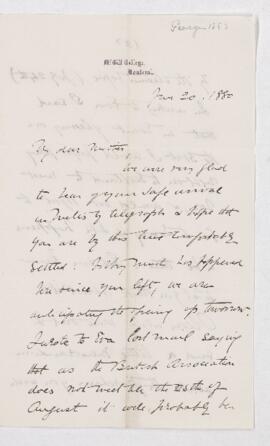 McGill College,
Montreal.
20, 1880
My dear
We are very glad
to hear of your safe arrival
by telegraph & hope that
you are by this time comfortably
settled. Not much has happened
here since you left, we are
anticipating the
I wrote to Eva last mail saying
that as the British Association
does not meet till the 25th of
August it will probably be